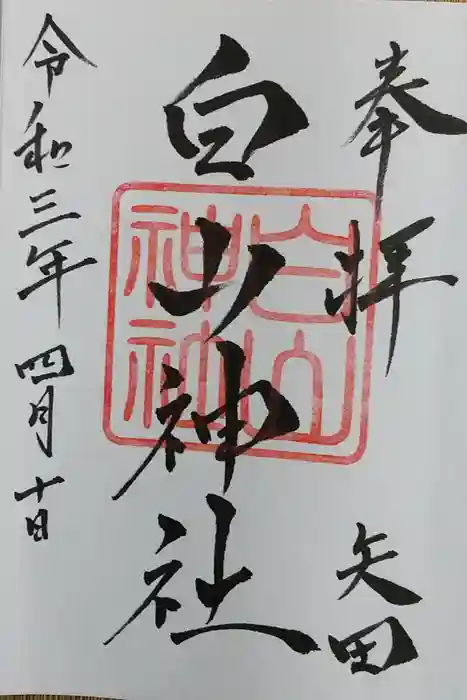 奉拝
矢田
白山神社
令和三年四月十日
白山
神社